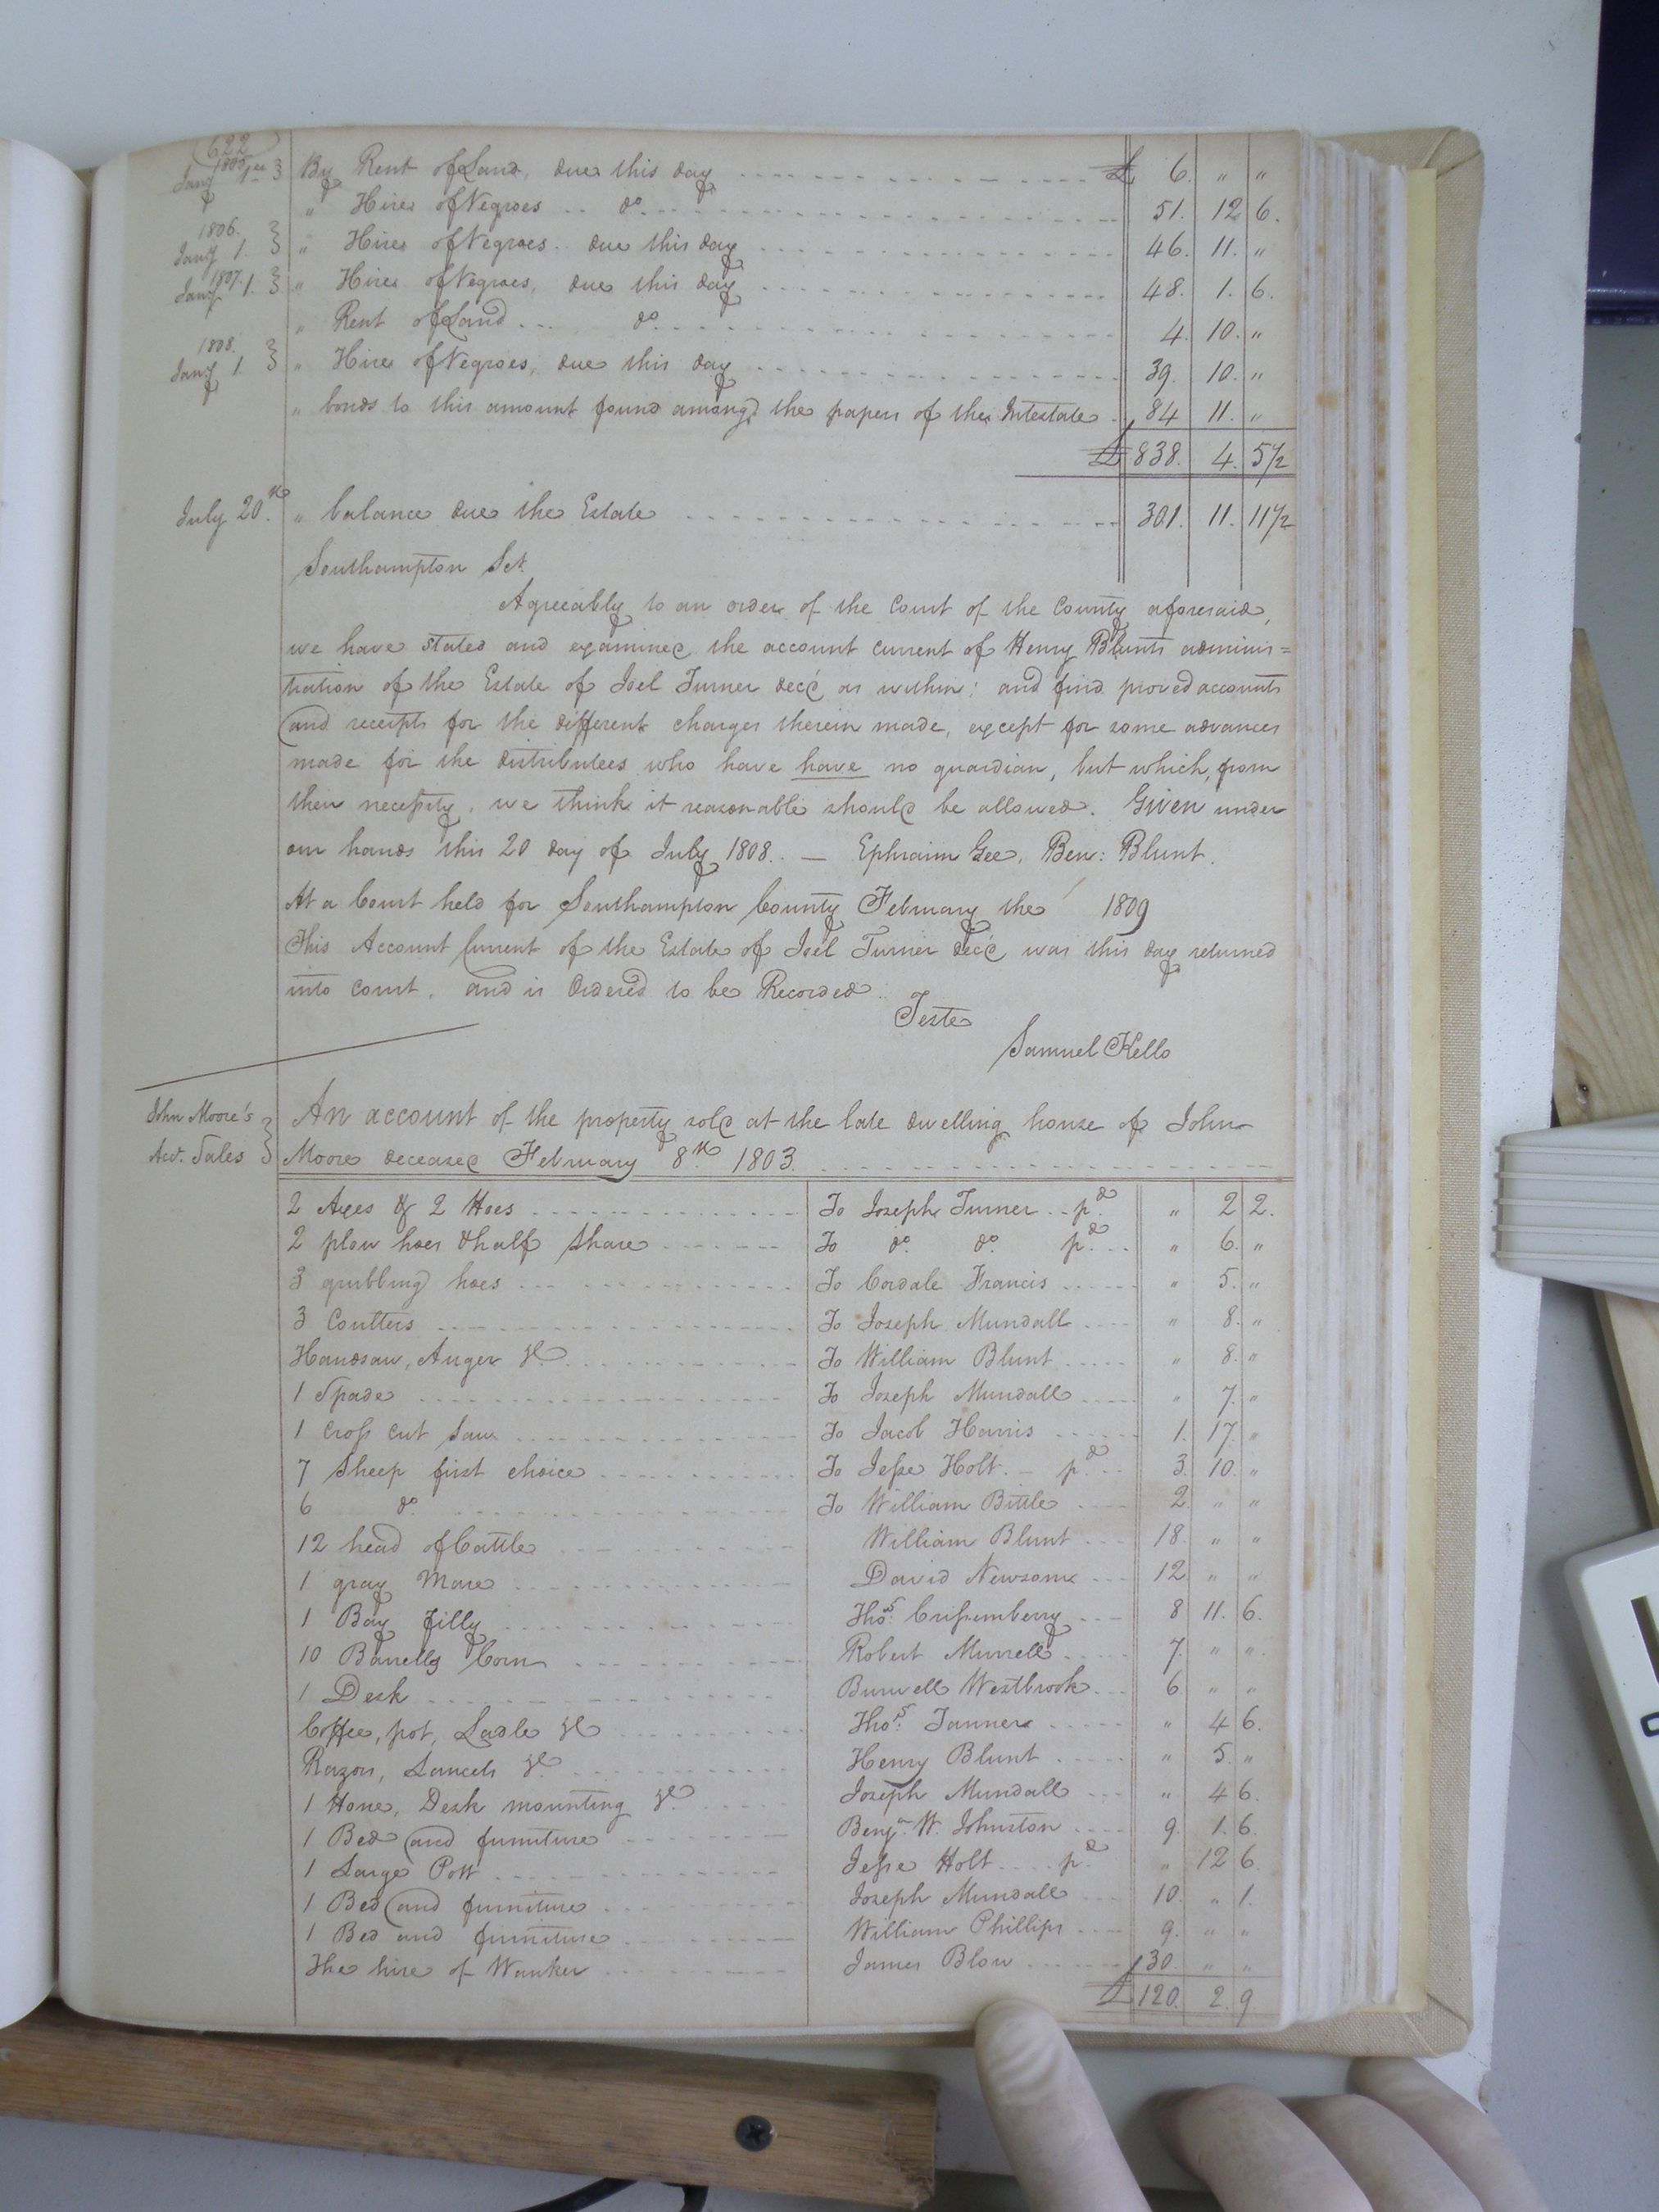 622
1805
Jany 1st } By Rent of Land, due this day £ 6. " "
" Hires of Negroes do. 51. 12 6.
1806.
Jany 1. } " Hires of Negroes. due this day 46. 11. "
1807.
Jany 1. } " Hires of Negroes, due this day 48. 1. 6.
" Rent of Land do. 4. 10. "
1808.
Jany 1. } " Hires of Negroes, due this day 39. 10. "
" bonds to this amount found among the papers of the Intestate 84 11. "
£ 838. 4. 5 1/2
July 20th. " balance due the Estate 301. 11. 11 1/2
Southampton Sct.
Agreeably to an order of the Court of the County aforesaid,
we have stated and examined the account current of Henry Blunts adminis=
tration of the Estate of Joel Turner decd as within; and find proved accounts
and receipts for the different charges therein made, except for some advances
made for the distributees who have have no guardian, but which, from
their necessity, we think it reasonable should be allowed. Given under
our hands this 20 day of July 1808. — Ephraim Gee, Ben: Blunt.
At a Court held for Southampton County February the 1809
This Account Current of the Estate of Joel Turner decd was this day returned
into court, and is Ordered to be Recorded.
Teste
Samuel Kello
John Moore's
Acct. Sales } An account of the property sold at the late dwelling house of John
Moore deceased February 8th. 1803.
2 Axes & 2 Hoes To Joseph Turner pd. " 2 2.
2 plow hoes & half Share To do. do. pd. " 6. "
3 grubbing hoes To Cordale Francis " 5. "
3 Coulters To Joseph Mundall " 8. "
Handsaw, Auger &c. To William Blunt " 8. "
1 Spade To Joseph Mundall " 7. "
1 cross cut saw To Jacob Harris 1. 17. "
7 Sheep first choice To Jesse Holt pd. 3. 10. "
6 do. To William Bittle 2. " "
12 head of Cattle William Blunt 18. " "
1 gray Mare David Newsom 12 " "
1 Bay filly Thos. Crissemberry 8 11. 6.
10 Barrells Corn Robert Murrell 7. " "
1 Desk Burwell Westbrook 6 " "
Coffee, pot, Ladle &c Thos. Tanner " 4 6.
Razors, Lancets &c. Henry Blunt " 5. "
1 Hone, Desk mounting &c. Joseph Mundall " 4 6.
1 Bed and furniture Benjn. W. Johnston 9. 1. 6.
1 Large Pott Jesse Holt pd. " 12 6.
1 Bed and furniture Joseph Mundall 10. " 1.
1 Bed and furniture William Phillips 9. " "
The hire of Wanker James Blow 30. " "
£ 120. 2. 9